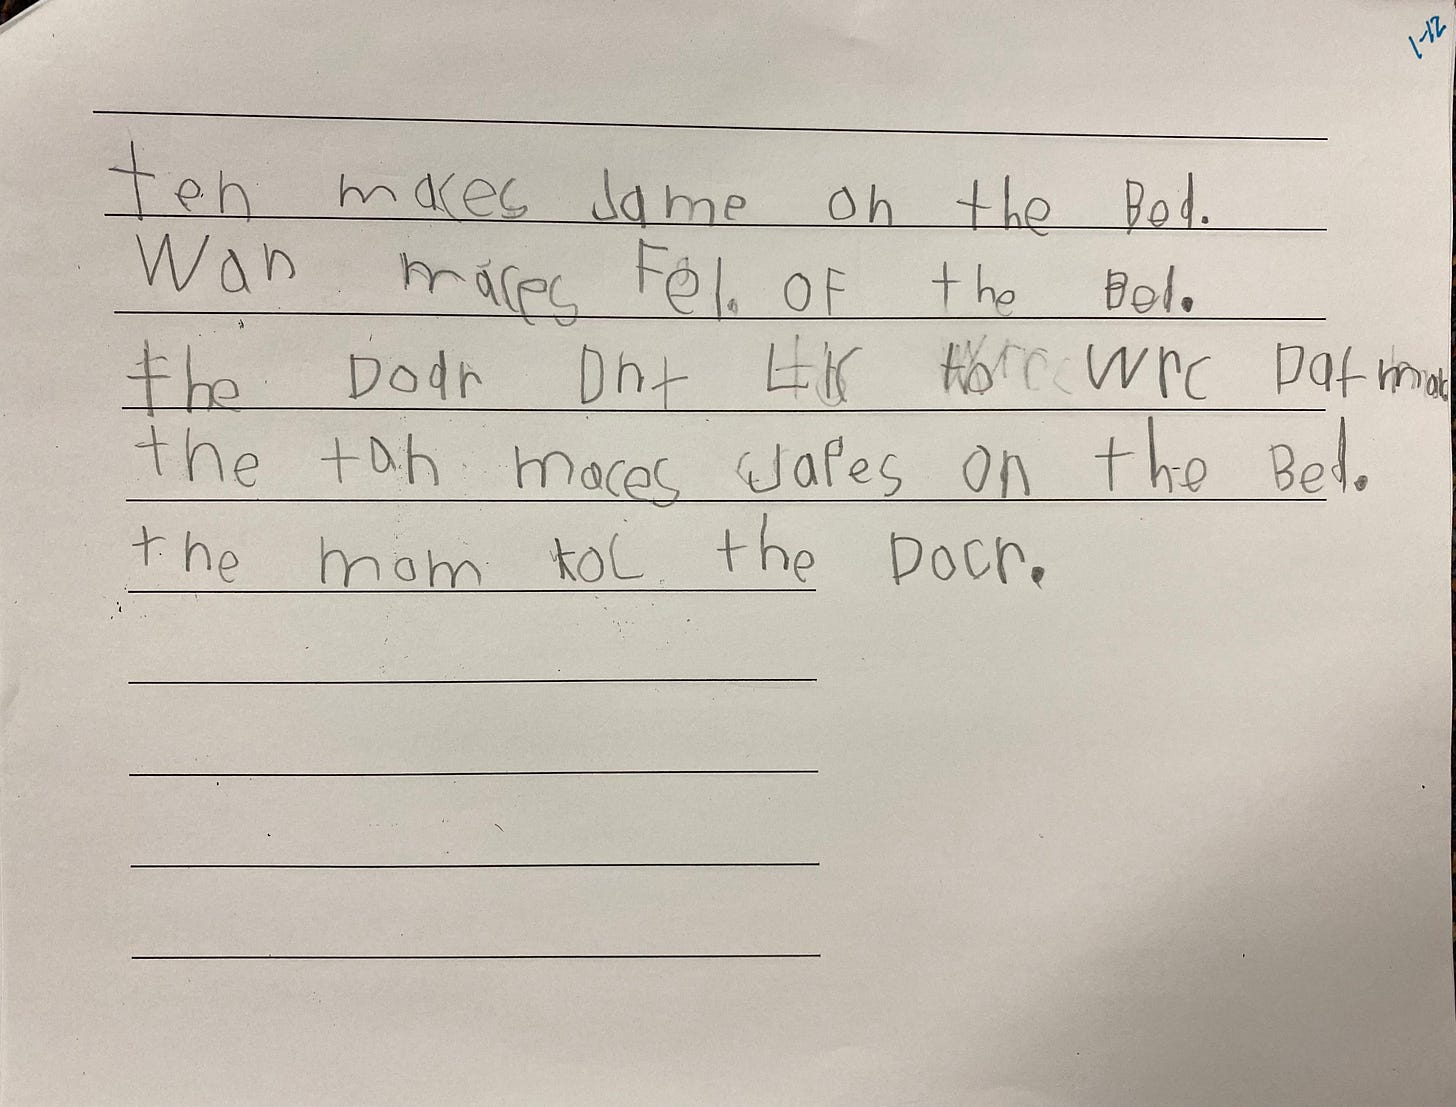 1-12
ten maces Jame on the Bed.
Wan maces Fel. OF the Bed.
the Dodr Dnt Lik to Wrc Dat
the tah maces Japes on the Bed.
the mom toL the Docr.